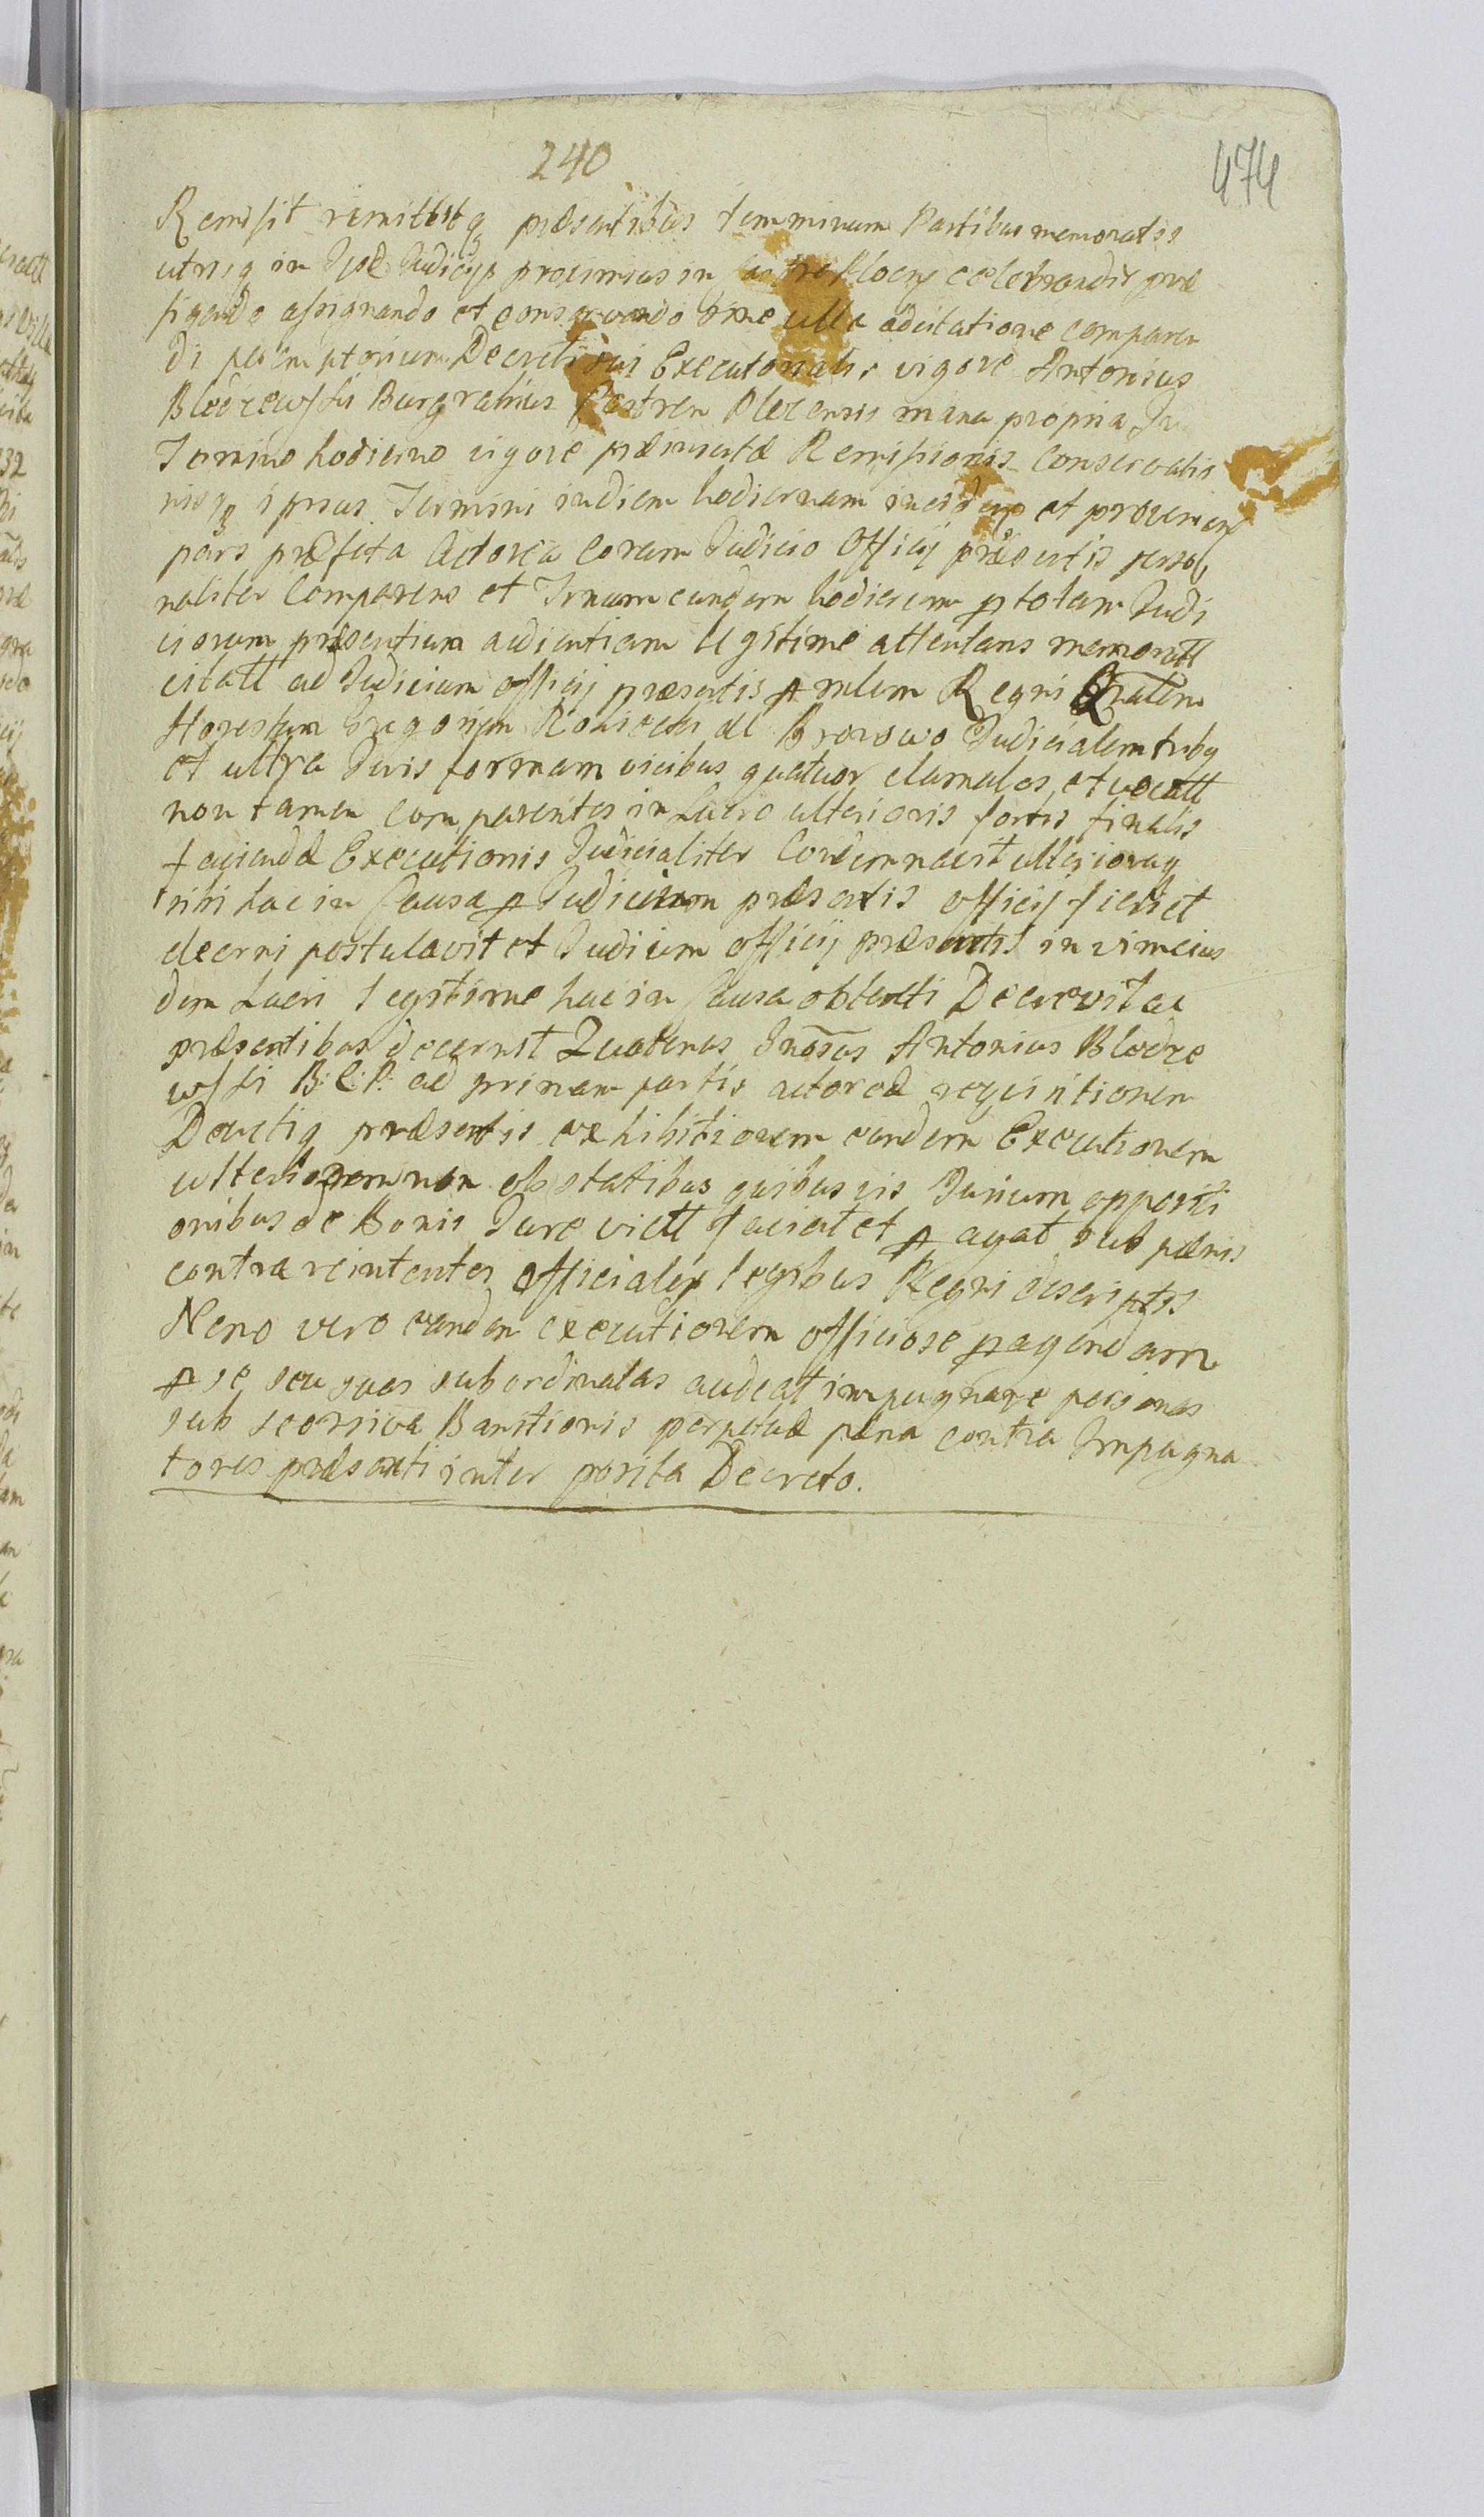 240
474
Remisit remittitq præsentibus terminum Partibus memoratis
utrisq in Jisdē Judicijs proximius in Castro Plocen celebrandis præ
figendo assignando et conservando sine ulla adcitatione comparen
di peremptorium Decreti sui Executorialis vigore Antonius
Bledzewski Burgrabius Castren Plocensis manu propria In
Termino hodierno vigore præinsertæ Remissionis Conservatis
nisq ipsius Termini in diem hodiernam inciden et provenien
pars præfata Actorea Coram Judicio Officij præsentis perso
naliter Comparens et Trnum eundem hodiernum p totam Judi
ciorum præsentium audientiam legitime attentans memoratt
citatt ad Judicium officij præsentis p mlem Regni Gnalem
Honestum Gregorium de Judicialem tribq
et ultra Juris formam vicibus quatuor clamatos et vocatt
non tamen comparentes in Lucro ulterioris fortis finalis
faciendæ Executionis Judicialiter Condemnavit ulterioraq
sibi hac in Causa p Judicium præsentis officij fieri et
decerni postulavit et Judicium officij præsentis in vim eius
dem Lucri legitime hac in Causa obtenti Decrevit ac
præsentibus decernit Quatenus Gnosus Antonius Bledze
wski B: C: P: ad primam partis actoreæ requisitionem
Decretiq præsentis exhibitionem eandem Executionem
ulteriorem non obstatibus quibusvis Jurium oppositi
onibus de Bonis Jure victt faciat et p agat sub pænis
contra renitentes officiales legibus Regni descriptis
Nemo vero eandem executionem officiose p agendam
p se seu suas subordinatas audeat impugnare personas
sub seorsiva Banitionis perpetuæ pæna contra Impugna
tores præsenti inter posita Decreto.